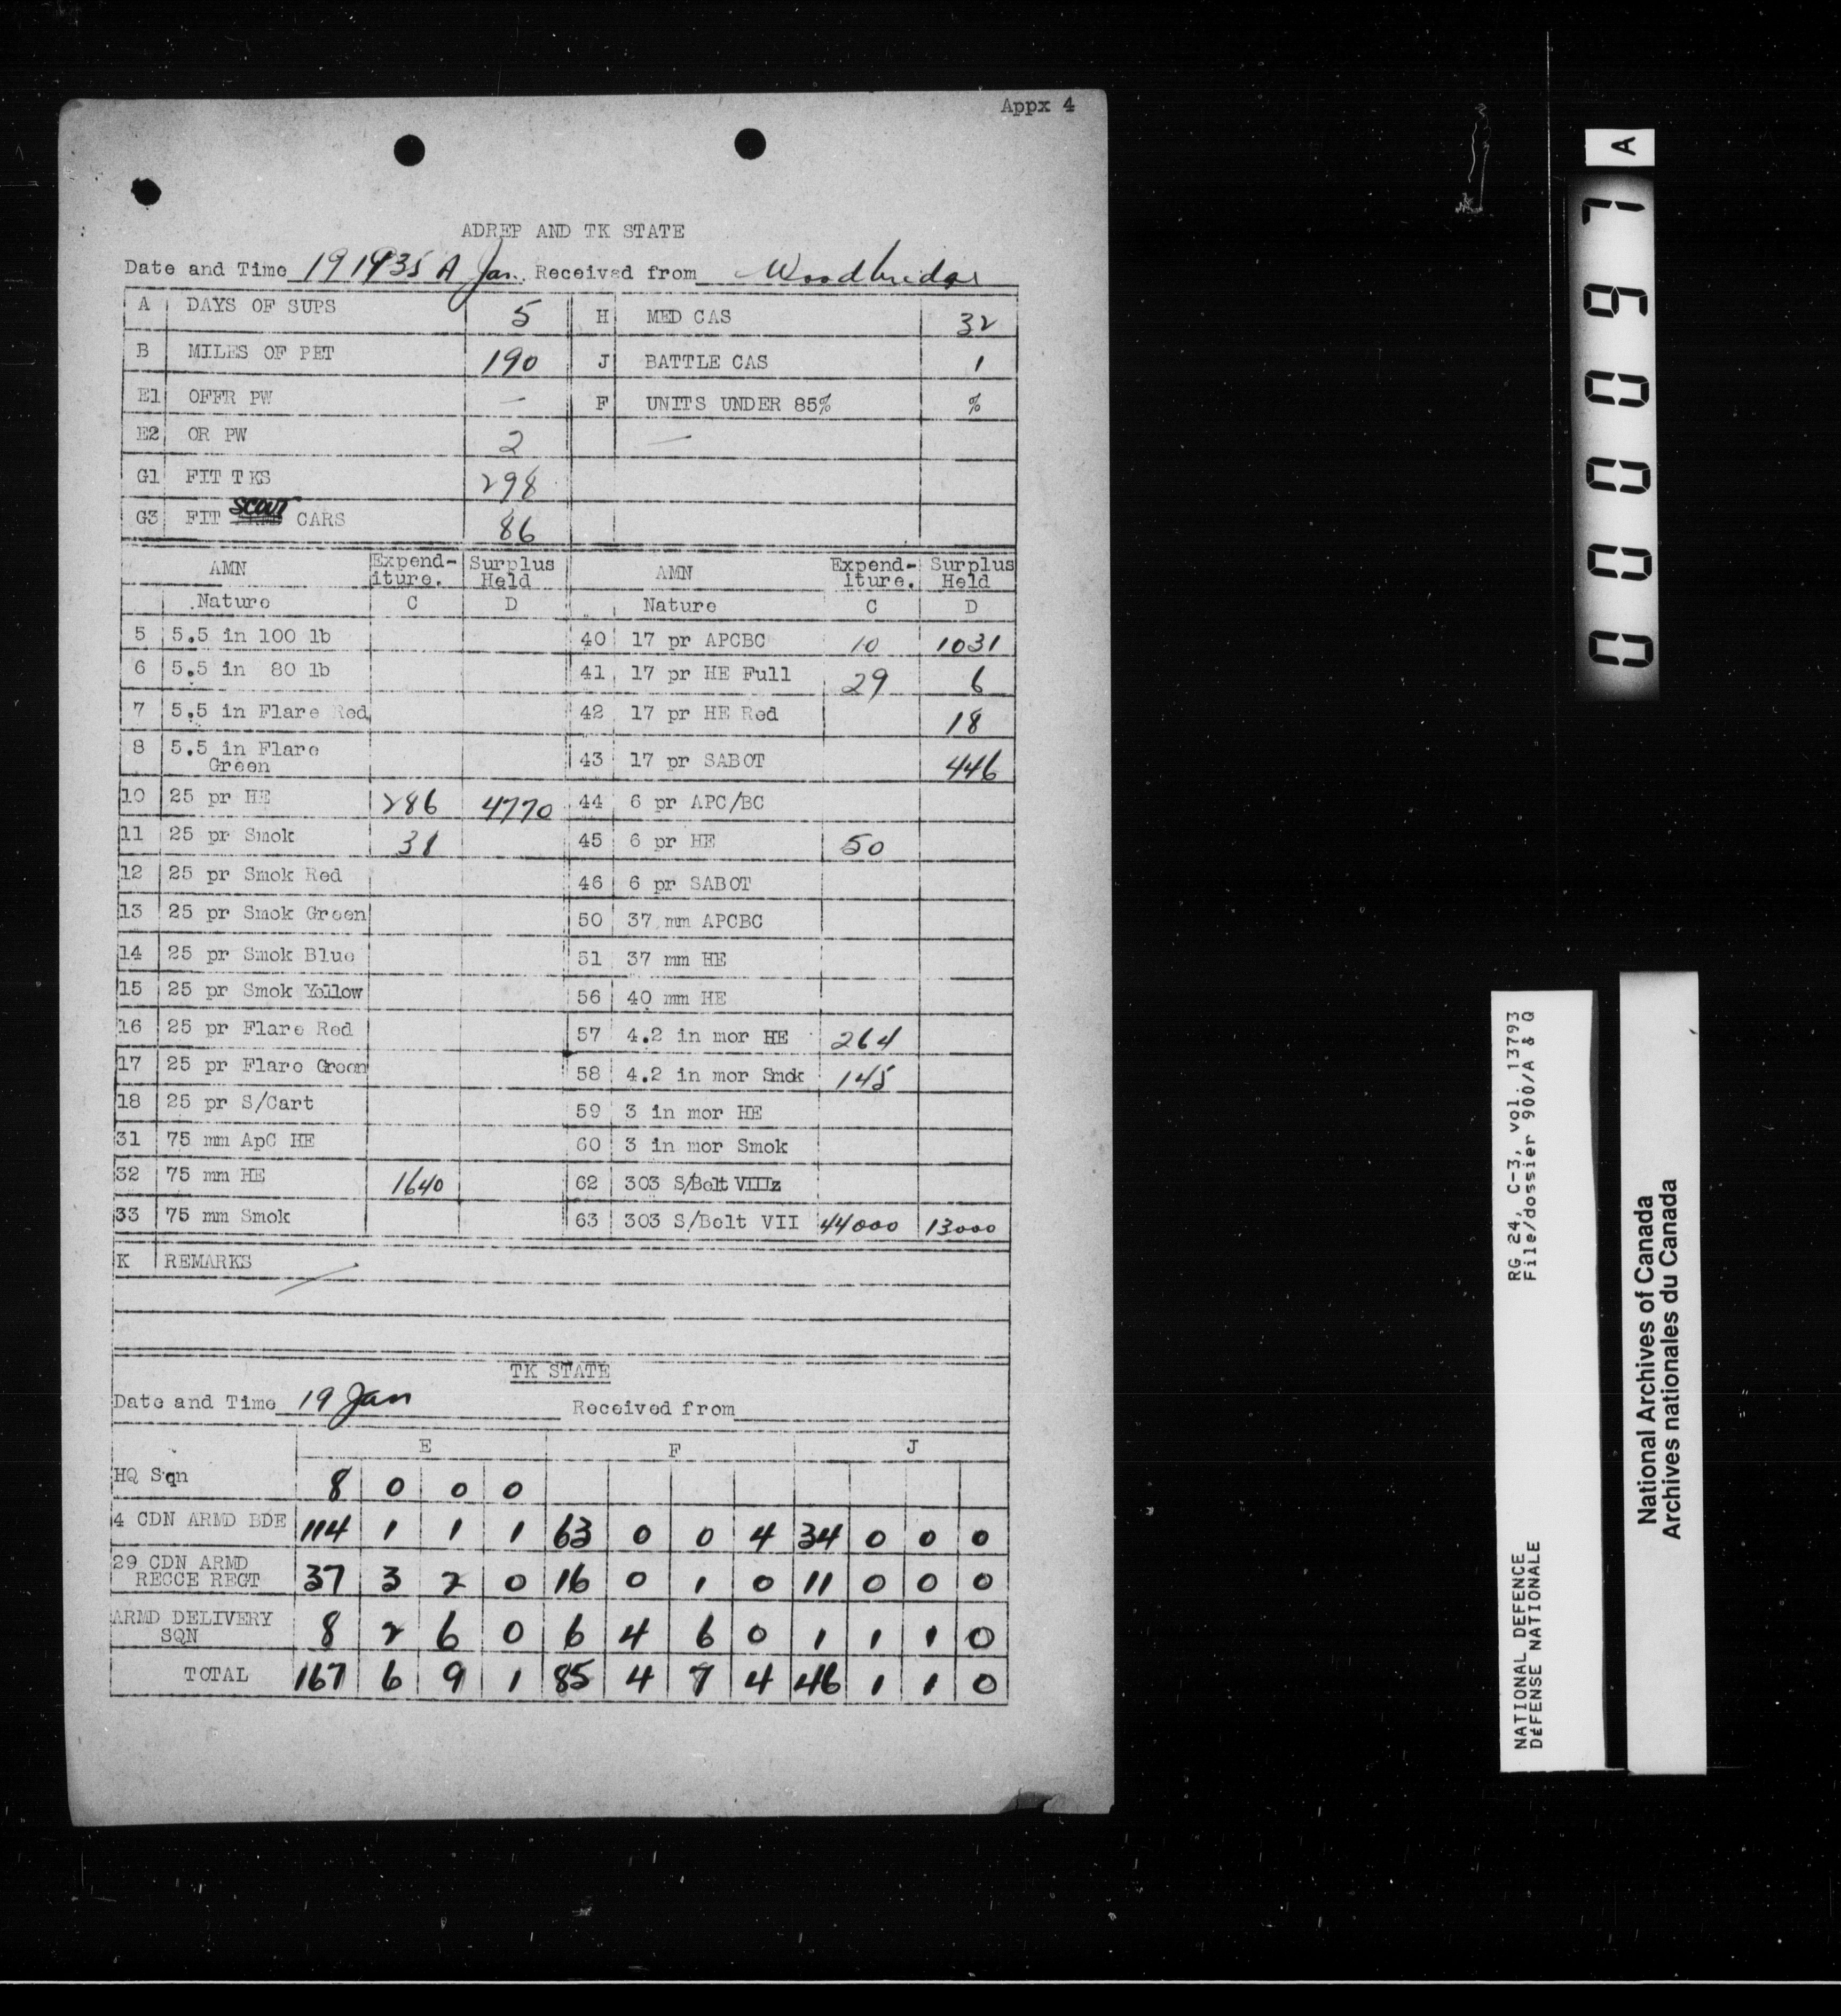 Appx 4
ADREP AND TK STATE
Date and Time 191935 A Jan. Received from Woodbridge
A DAYS OF SUPS 5 H MED CAS 32
B MILES OF PET 190 J BATTLE CAS 1
E1 OFFR PW — F UNITS UNDER 85% %
E2 OR PW 2 —
G1 FIT TKS 298
G3 FIT SCOUT CARS 86
AMN Expend- Surplus AMN Expend- Surplus
iture. Held iture. Held
Nature C D Nature C D
5 5.5 in 100 lb 40 17 pr APCBC 10 1031
6 5.5 in 80 lb 41 17 pr HE Full 29 6
7 5.5 in Flare Red 42 17 pr HE Red 18
8 5.5 in Flare
Green 43 17 pr SABOT 446
10 25 pr HE 286 4770 44 6 pr APC/BC
11 25 pr Smok 38 45 6 pr HE 50
12 25 pr Smok Red 46 6 pr SABOT
13 25 pr Smok Green 50 37 mm APCBC
14 25 pr Smok Blue 51 37 mm HE
15 25 pr Smok Yellow 56 40 mm HE
16 25 pr Flare Red 57 4.2 in mor HE 264
17 25 pr Flare Green 58 4.2 in mor Smok 145
18 25 pr S/Cart 59 3 in mor HE
31 75 mm ApC HE 60 3 in mor Smok
32 75 mm HE 1640 62 303 S/Belt VIIIz
33 75 mm Smok 63 303 S/Belt VII 44000 13000
K REMARKS
TK STATE
Date and Time 19 Jan Received from
E F J
HQ Sqn 8 0 0 0
4 CDN ARMD BDE 114 1 1 1 63 0 0 4 34 0 0 0
29 CDN ARMD
RECCE REGT 37 3 2 0 16 0 1 0 11 0 0 0
ARMD DELIVERY
SQN 8 2 6 0 6 4 6 0 1 1 1 0
TOTAL 167 6 9 1 85 4 7 4 46 1 1 0
000097 A
RG 24, C-3, vol. 13793
File/dossier 900/A & Q
NATIONAL DEFENCE
DéFENSE NATIONALE
National Archives of Canada
Archives nationales du Canada